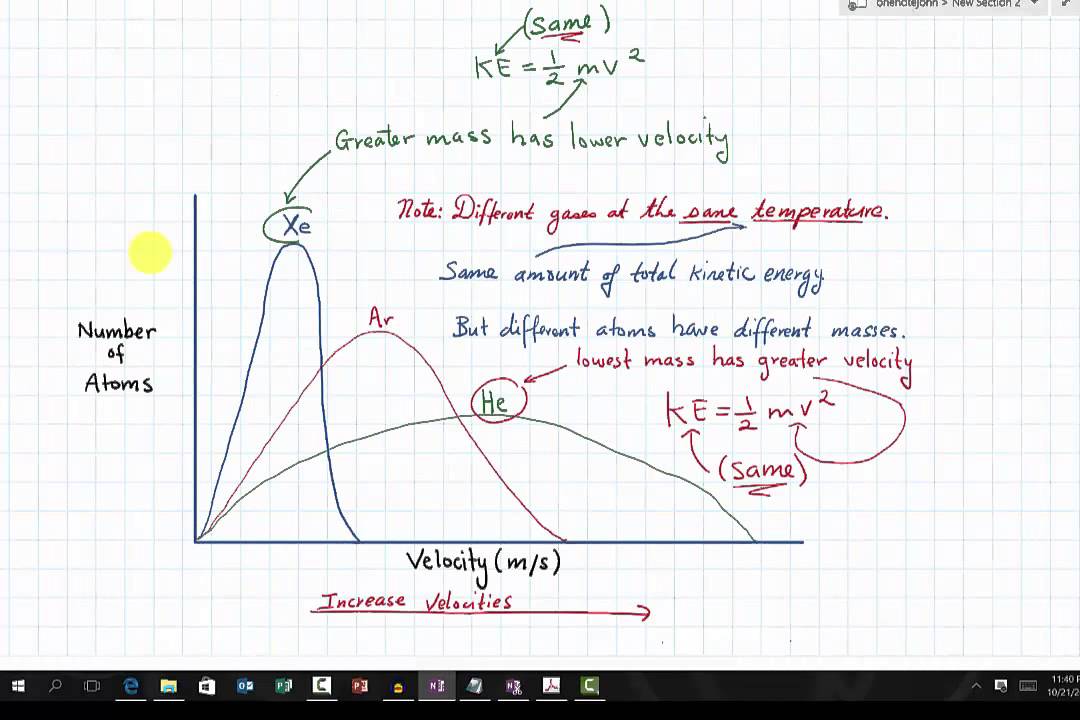 onenotejohn > New Section 2
(same)
KE = 1/2 mv²
Greater mass has lower velocity
Xe
Note: Different gases at the same temperature.
Same amount of total kinetic energy
Ar
But different atoms have different masses.
Number
of
Atoms
lowest mass has greater velocity
He
KE = 1/2 mv²
(same)
Velocity (m/s)
Increase Velocities
11:40
10/21/20